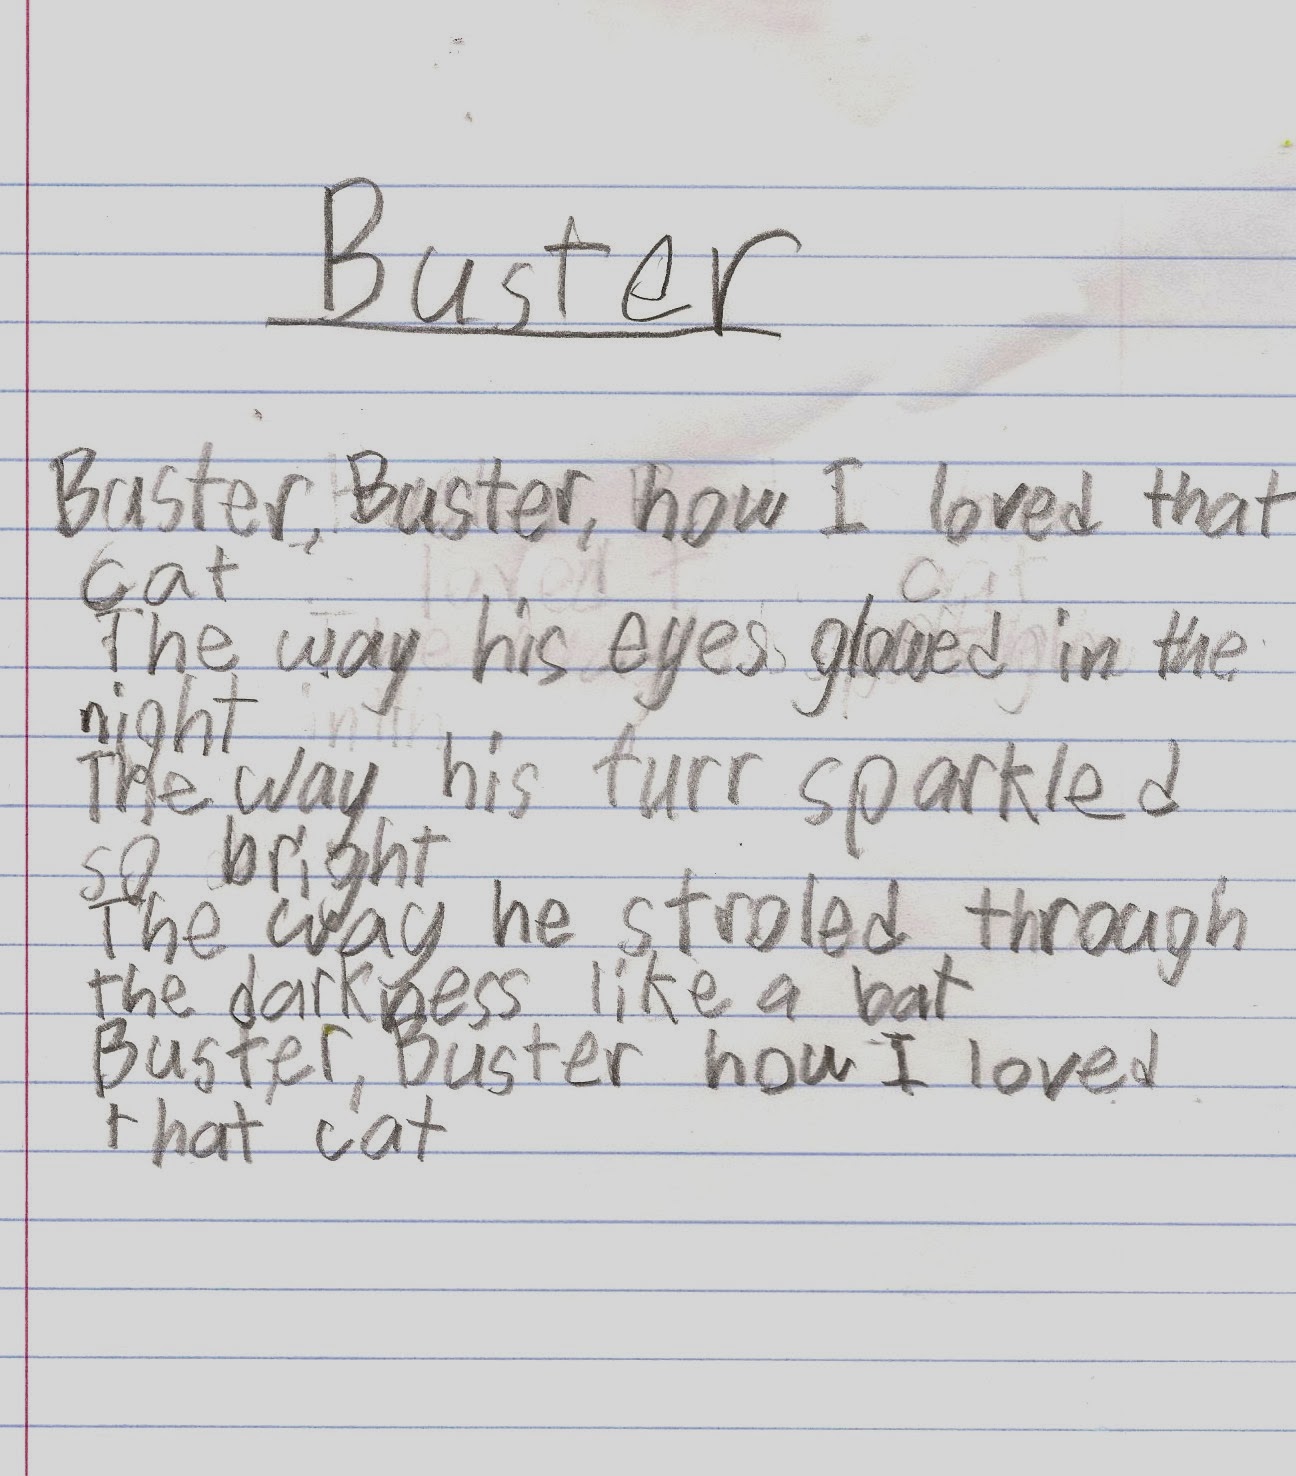 Buster
Buster, Buster, how I loved that
cat
The way his eyes glowed in the
night
The way his furr sparkled
so bright
The way he stroled through
the darkness like a bat
Buster, Buster how I loved
that cat